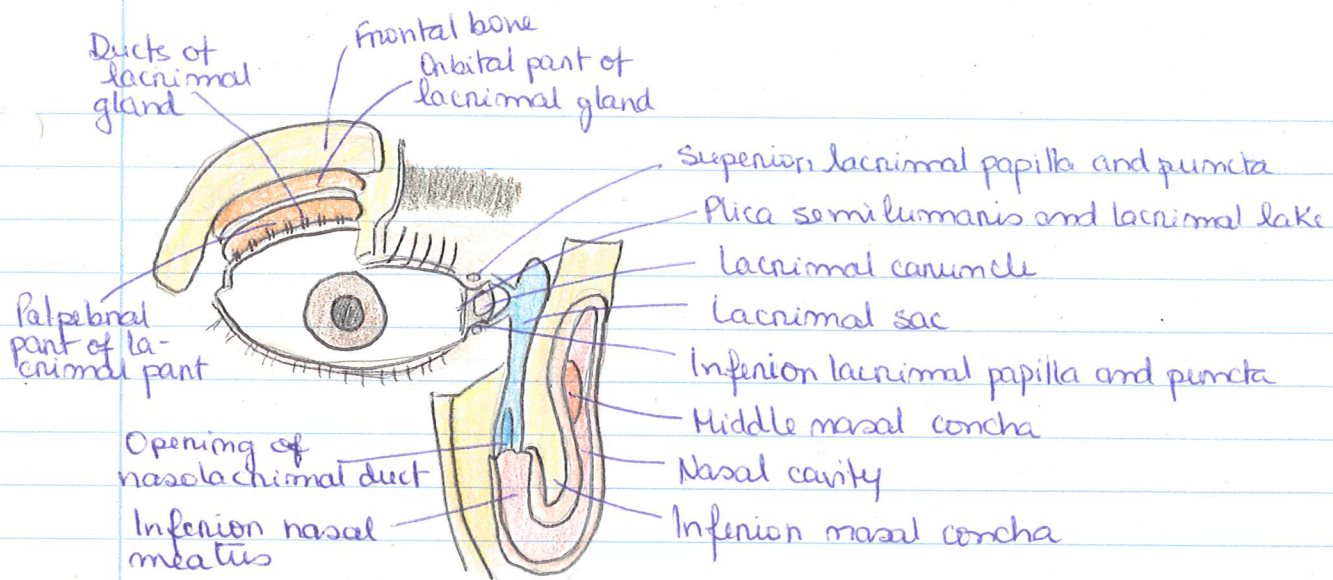 Ducts of
lacrimal
gland
Frontal bone
Orbital part of
lacrimal gland
Superior lacrimal papilla and puncta
Plica semilumaris and lacrimal lake
Lacrimal caruncle
Lacrimal sac
Inferior lacrimal papilla and puncta
Middle nasal concha
Nasal cavity
Inferior nasal concha
Palpebral
part of la-
crimal part
Opening of
nasolachrimal duct
Inferior nasal
meatus